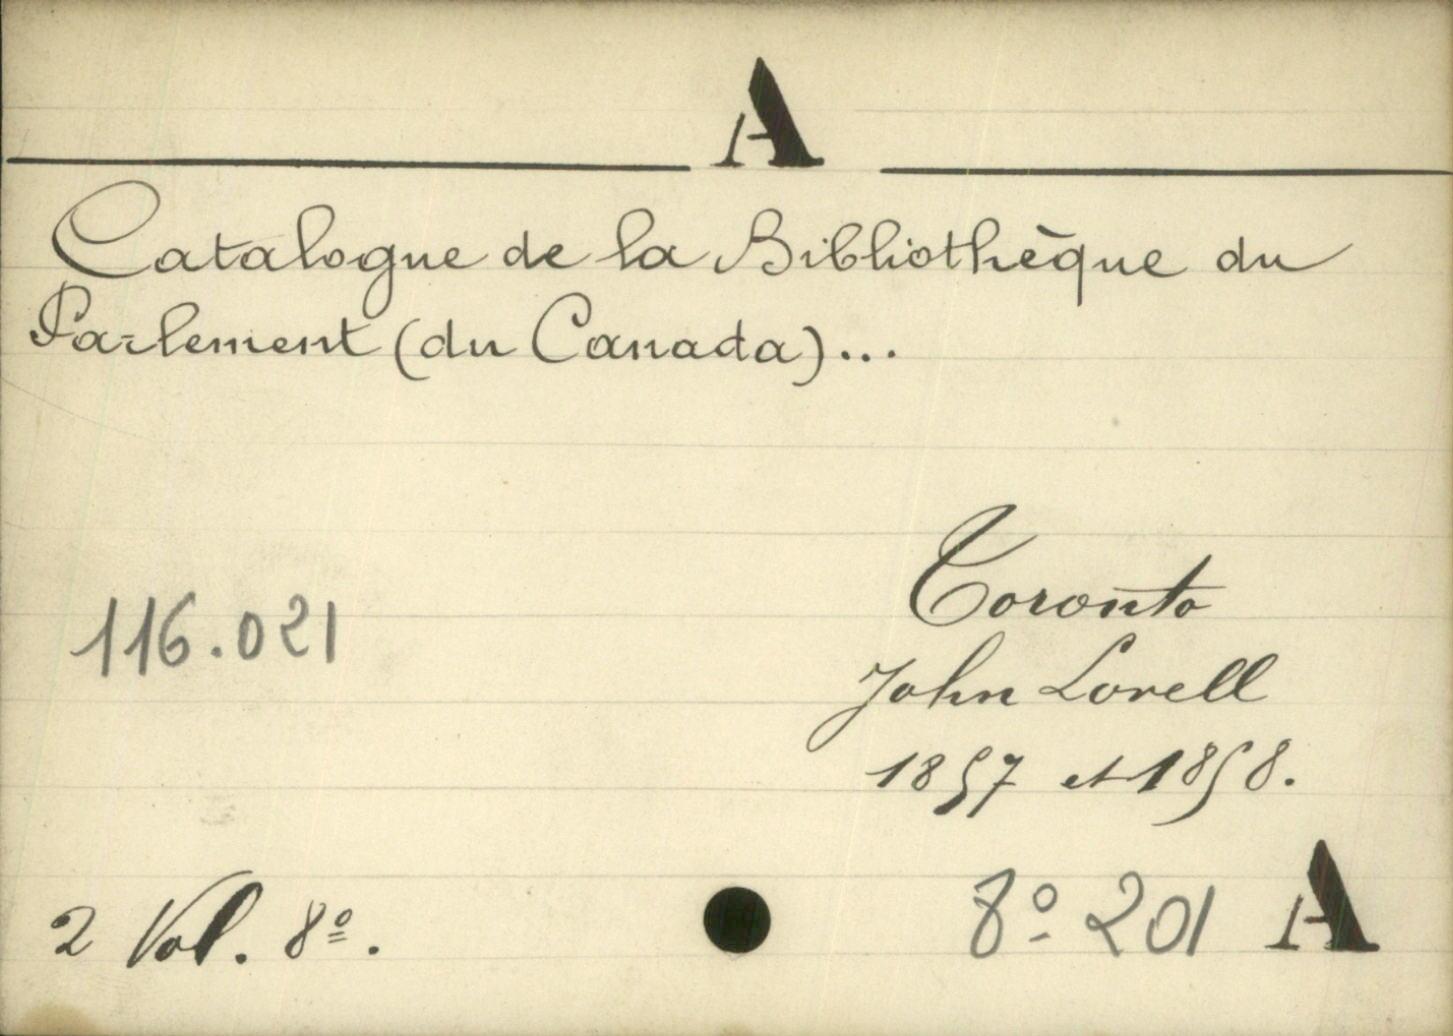 A
Catalogue de la Bibliothèque du
Parlement (du Canada)...
Toronto
116.021
John Lovell
1857 et 1858.
2 Vol. 8º.
8º 201 A